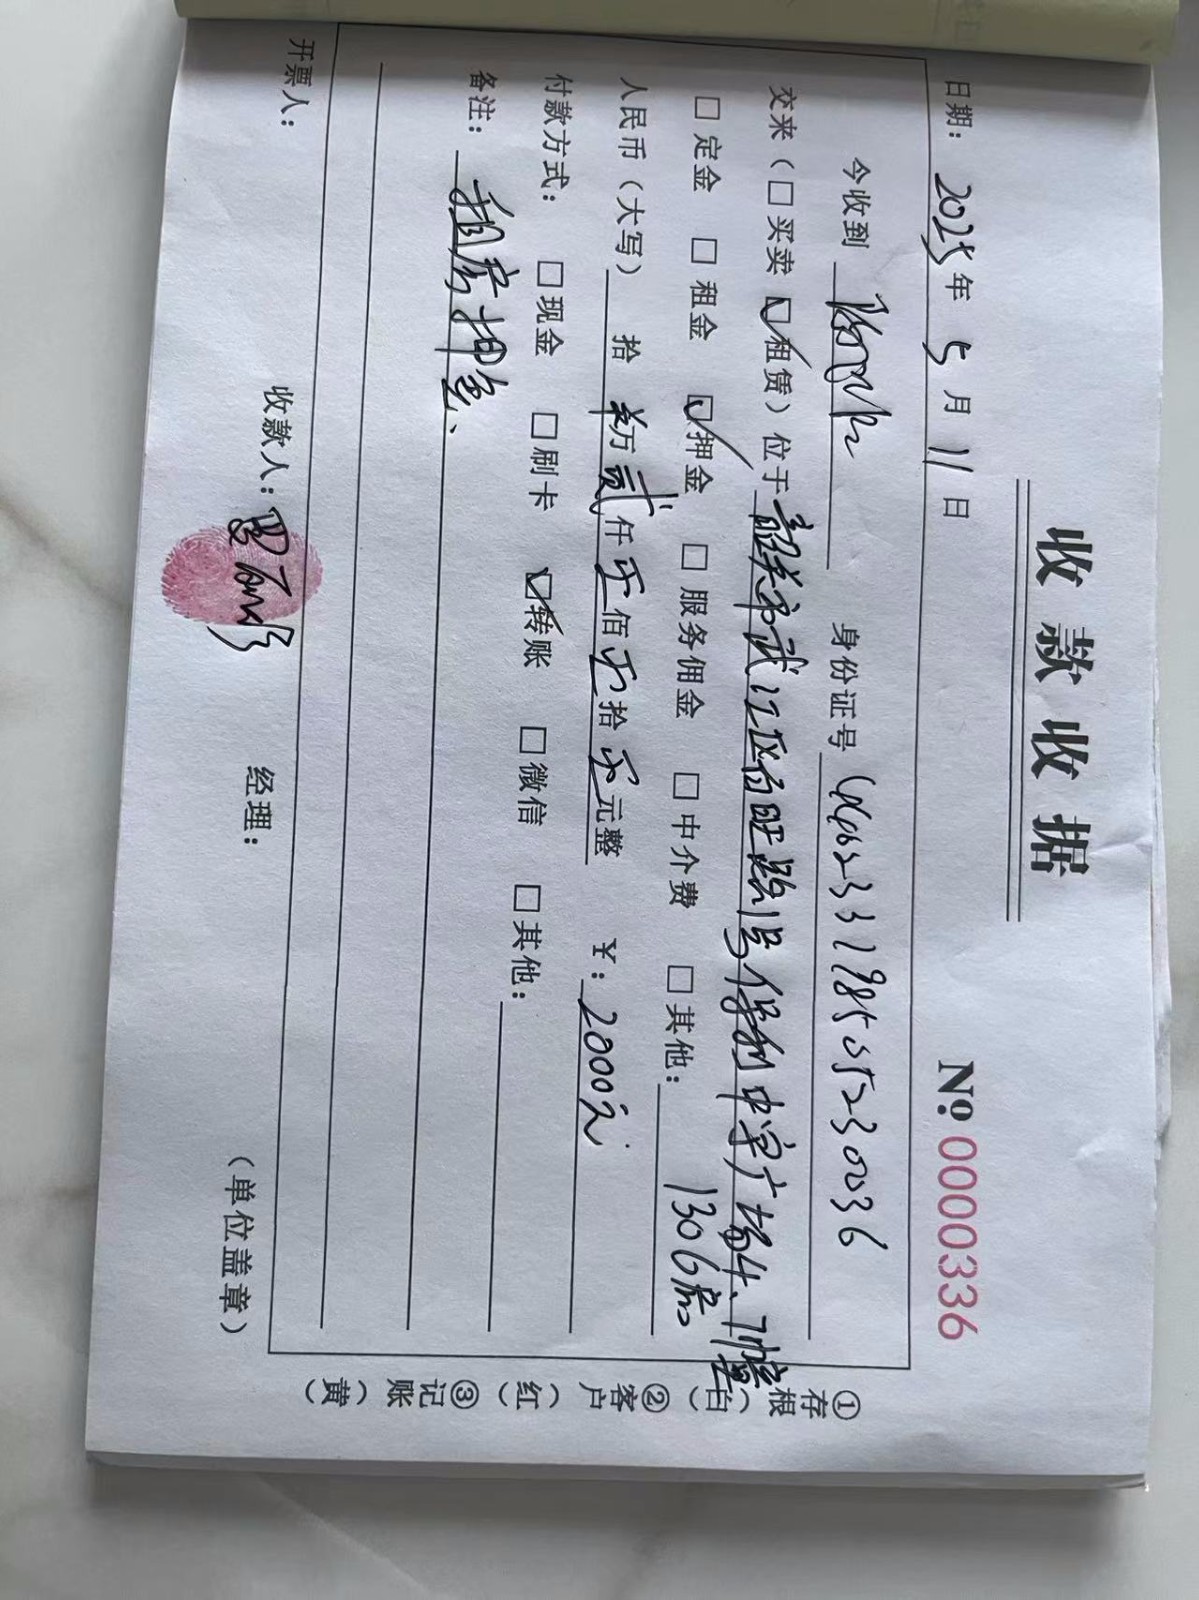 收款收据
日期：2025年5月11日 № 0000336
今收到 身份证号
交来（□买卖 ☑租赁）位于韶关市武江区百旺路1号保利中宇广场4、7幢
1306房
□定金 □租金 ☑押金 □服务佣金 □中介费 □其他：
人民币（大写） 拾 万贰仟零佰零拾零元整 ￥：2000元
付款方式： □现金 □刷卡 ☑转账 □微信 □其他：
备注： 租房押金、
开票人： 收款人： 经理： （单位盖章）
①存根（白） ②客户（红） ③记账（黄）